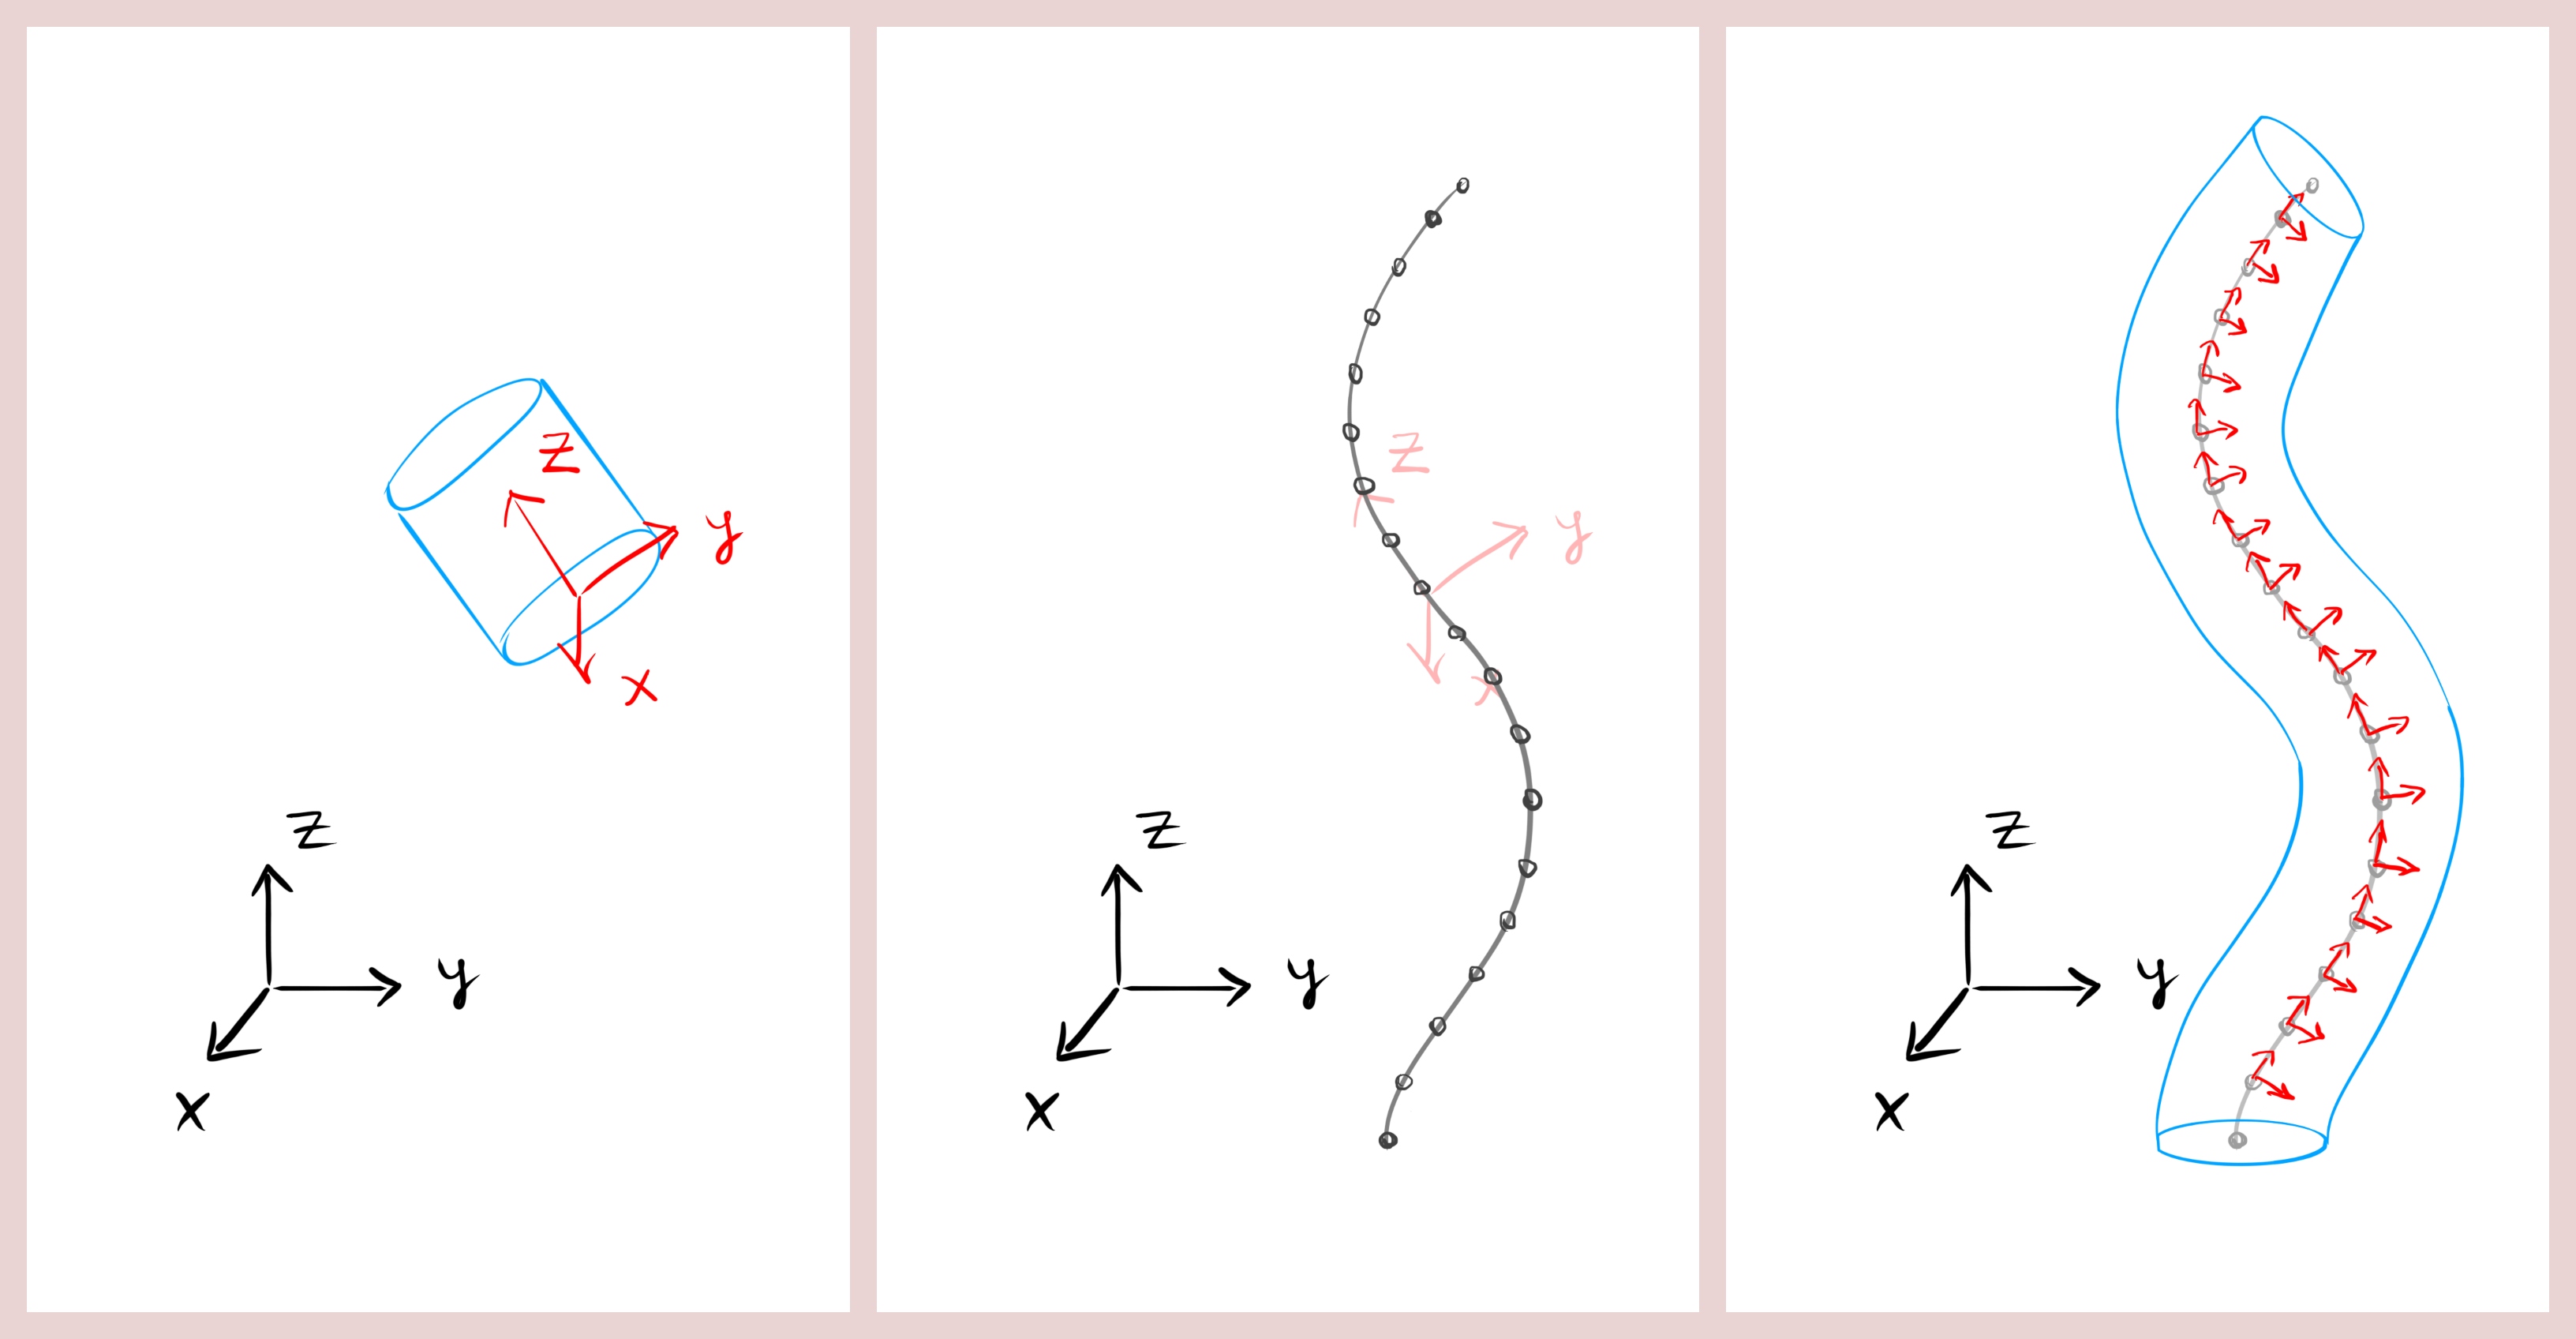 z
y
x
z
y
x
z
y
x
z
y
x
z
y
x